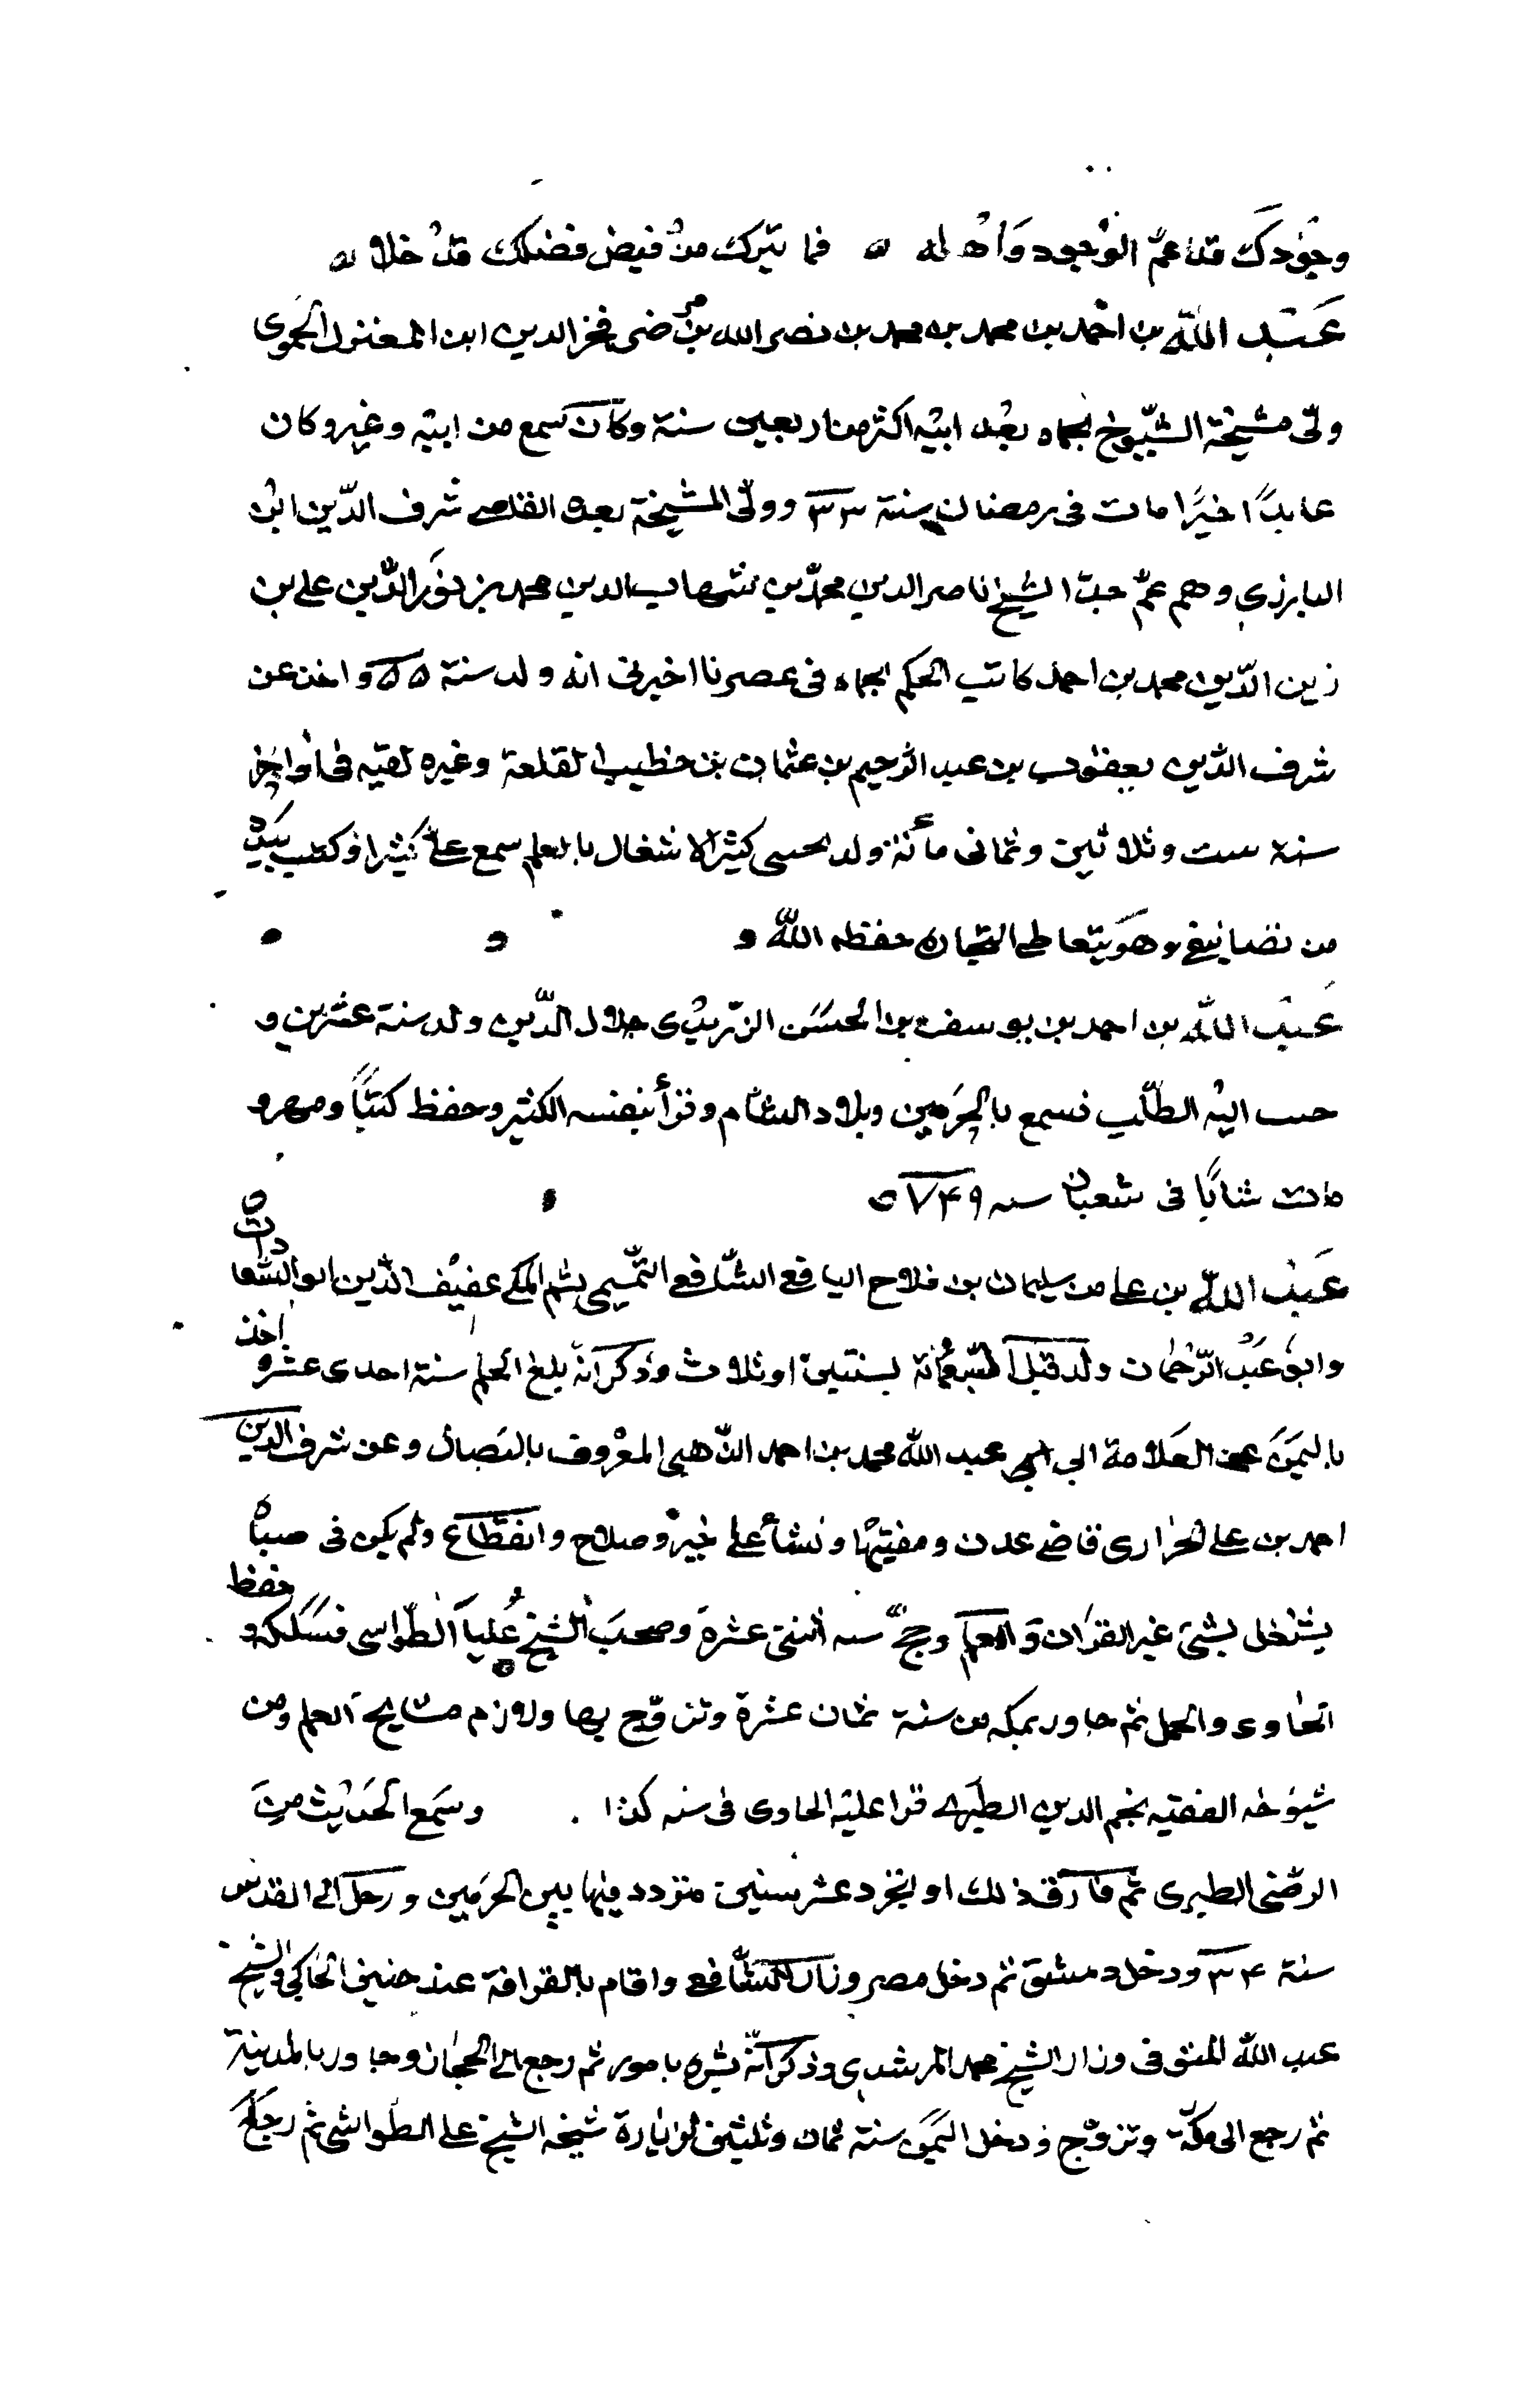 وجودك قد عمّ الوجود وأهله ہ فما يترك من فيض فضلك قد خلا ہ
عبد الله بن احمد بن محمد بن محمد بن نصر الله بن رضى فخر الدين ابن المغيزل الحموى
ولّى مشيخة الشيوخ بحماه بعد ابيه اكثر من اربعين سنة وكان سمع من ابيه وغيره وكان
عابدًا خيرًا مات فى رمضان سنة ٣٣ وولّى المشيخة بعده القاضى شرف الدّين ابن
البارزى وهم عمّ جدّ الشيخ ناصر الدين محمّد بن شهاب الدين محمد بن نور الدّين على بن
زين الدّين محمد بن احمد كاتب الحكم بحماه فى عصرنا اخبرنى انه ولد سنة ٥٥ واخذ عن
شرف الدّين يعقوب بن عبد الرحيم بن عثمان بن خطيب القلعة وغيره لقيه فى أواخر
سنة ست وثلاثين وثمانى مأئة ولد لحسى كثير الاشغال بالعلم سمع علىّ كثيرا وكتب بيده
من تصانيفى وهو يتعاطى التجارة حفظه الله
عبد الله بن احمد بن يوسف بن الحسن الزّرندى جلال الدّين ولد سنة عشرين و
حبب اليه الطّلب فسمع بالحرمين وبلاد الشام وقرأ بنفسه الكثير وحفظ كتبًا ومهر و
مات شابًا فى شعبان سنه ٧٤٩
عبد الله بن على بن سليمان بن فلاح اليافعى الشّافعى التّميمى ثم المكى عفيف الدّين ابو السّعادات
وابو عبد الرّحمان ولد قبل السّبعمائة بسنتين او ثلاث وذكر انّه بلغ الحلم سنة احدى عشر و اخذ
باليمن عن العلامة ابى عبد الله محمد بن احمد الذّهبى المعروف بالبصال وعن شرف الدين
احمد بن على الحرازى قاضى عدن ومفتيها ونشأ على خير وصلاح وانقطاع ولم يكن فى صباه
يشتغل بشىء غير القران والعلم وحجّ سنه أثنتى عشرة وصحب الشيخ عليا الطّواسى فسلكه و حفظ
الحاوى والجمل ثم جاور بمكه من سنة ثمان عشرة وتزوّج بها ولازم مشايخ العلم ومن
شيوخه الفقيه نجم الدين الطبرى قرا عليه الحاوى فى سنه كذا . وسمع الحديث من
الرضى الطبرى ثم فارق ذلك او تجرد عشر سنين متردد فيها بين الحرمين ورحل الى القدس
سنة ٣٤ ودخل دمشق ثم دخل مصر وزار الشافعى واقام بالقرافة عند حنيف الحاكى والشيخ
عبد الله المنوفى وزار الشيخ محمد المرشدى وذكر انّه بشره بامور ثم رجع الى الحجاز وجاور بالمدينة
ثم رجع الى مكّة وتزوّج ودخل اليمن سنة ثمان وثلثين لزيارة شيخه الشيخ على الطّواشى ثم رجع